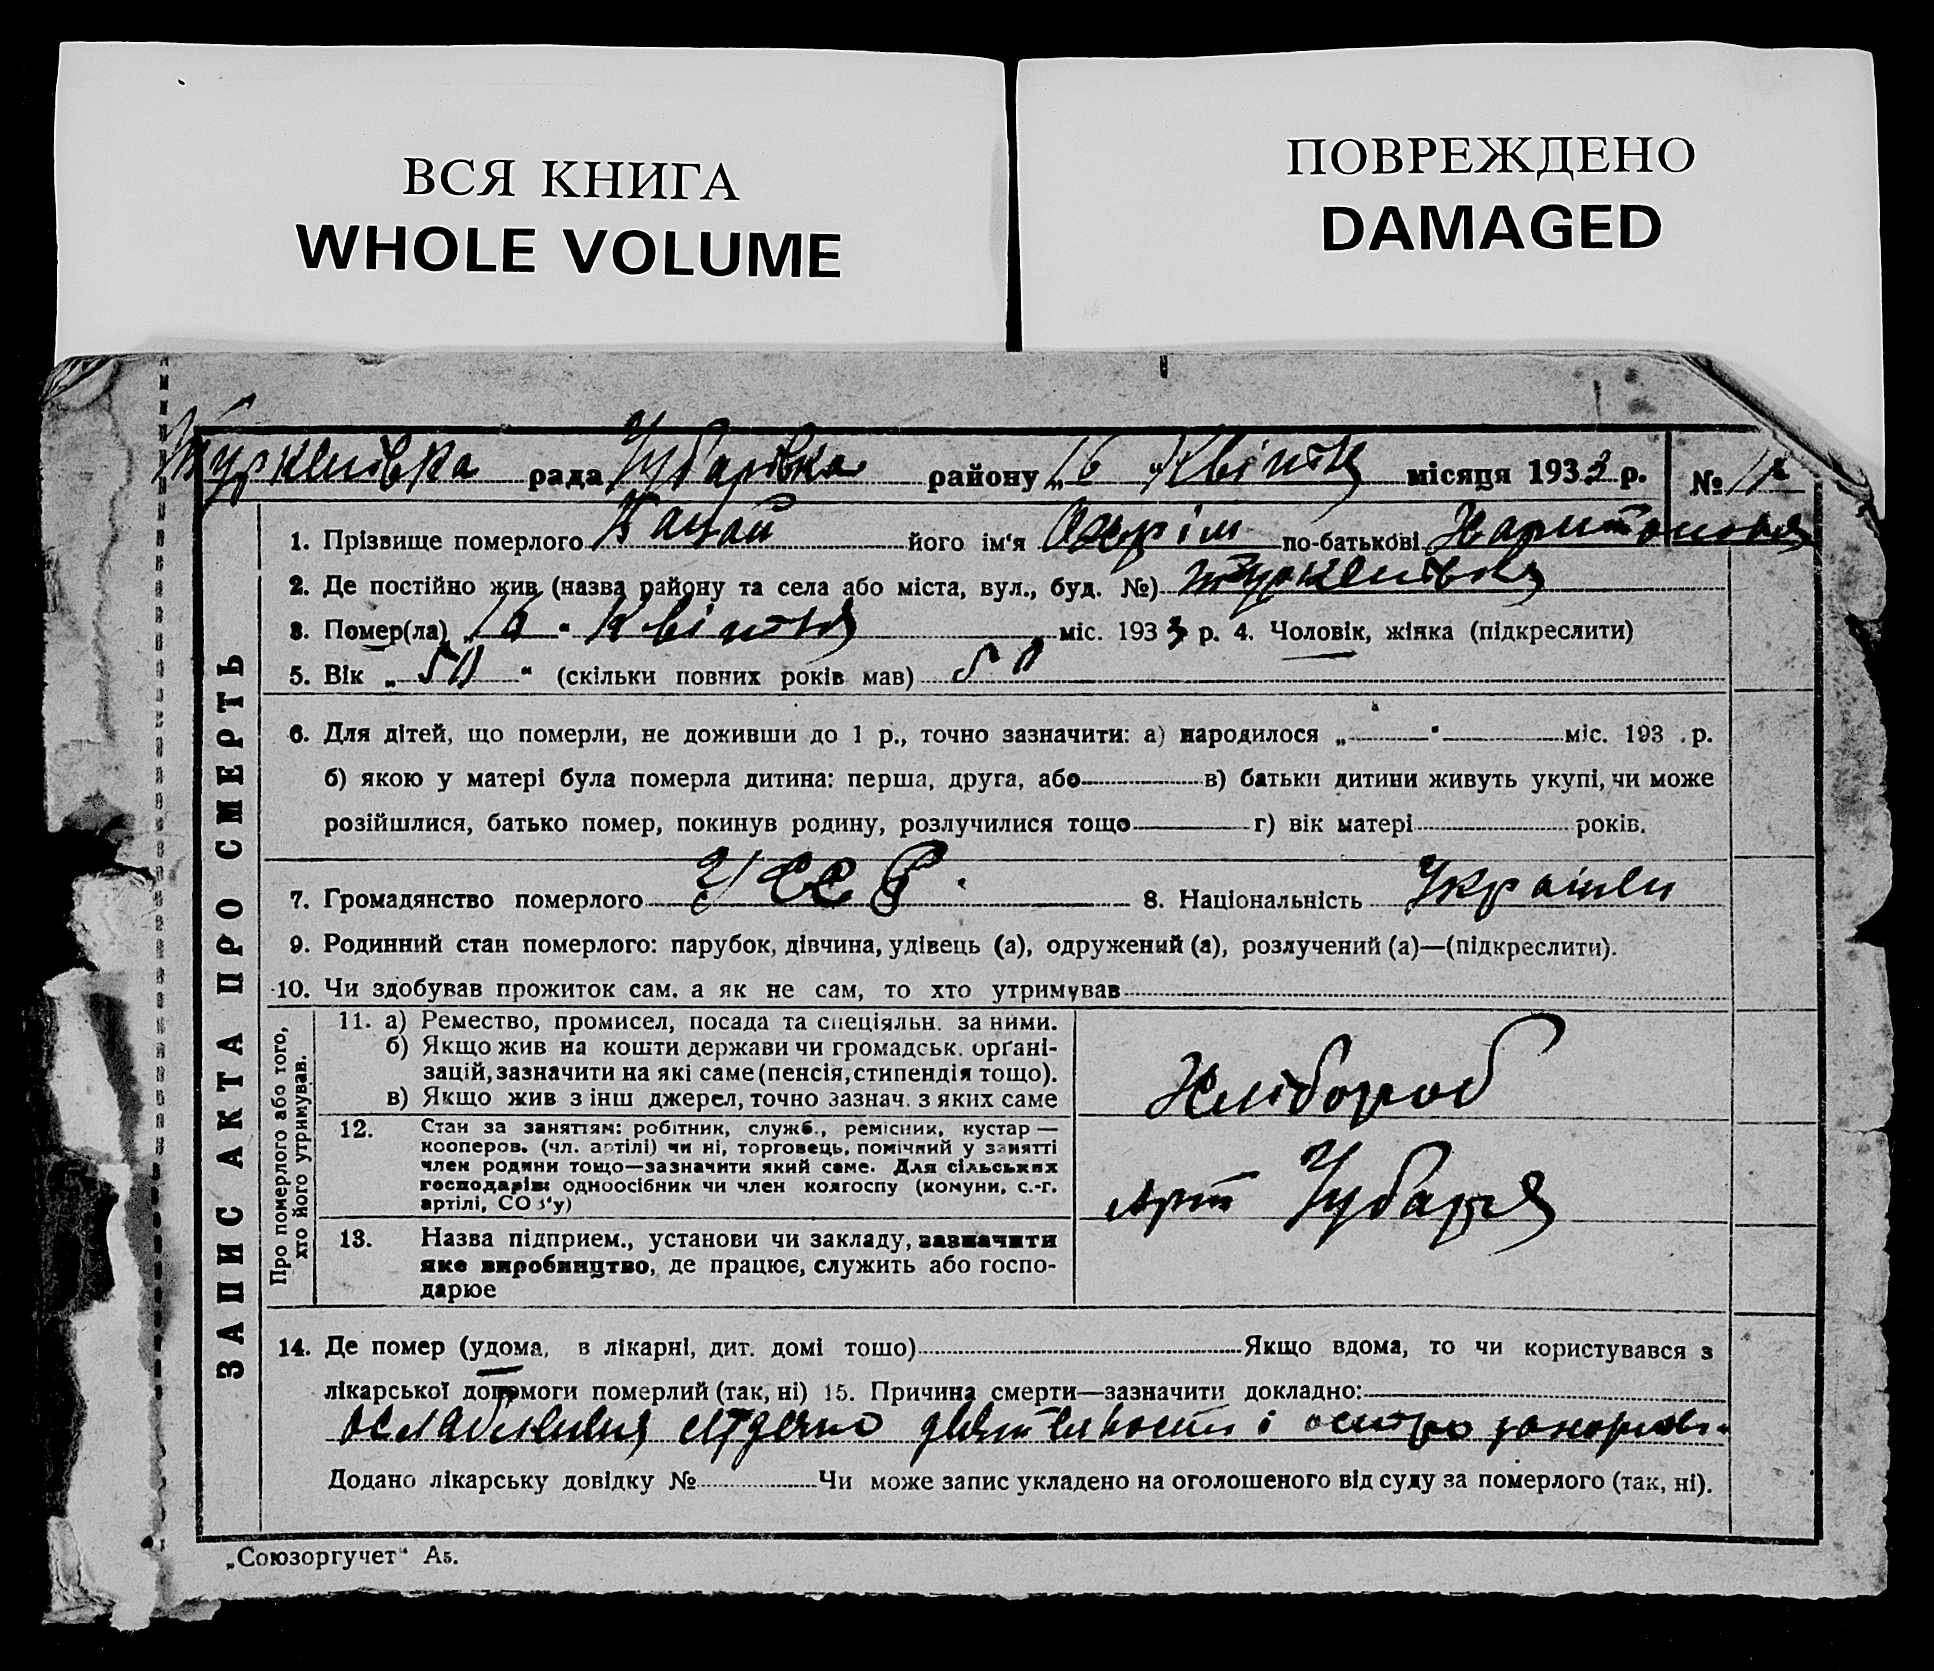 ВСЯ КНИГА
WHOLE VOLUME
ПОВРЕЖДЕНО
DAMAGED
Туркенівка рада Чубарівка району „16 “ Квітня місяця 1933 р. № 12
1. Прізвище померлого його ім'я Охрім по-батькові Харитонович
2. Де постійно жив (назва району та села або міста, вул., буд. №) Туркенівка
3. Помер(ла) „16“ Квітня міс. 1933 р. 4. Чоловік, жінка (підкреслити)
5. Вік „50“ (скільки повних років мав) 50
6. Для дітей, що померли, не доживши до 1 р., точно зазначити: а) народилося „ “ міс. 193 .р.
б) якою у матері була померла дитина: перша, друга, або в) батьки дитини живуть укупі, чи може
розійшлися, батько помер, покинув родину, розлучилися тощо г) вік матері років.
7. Громадянство померлого УССР. 8. Національність
9. Родинний стан померлого: парубок, дівчина, удівець (а), одружений (а), розлучений (а)—(підкреслити).
10. Чи здобував прожиток сам. а як не сам, то хто утримував
Про померлого або того,
хто його утримував.
11. а) Ремество, промисел, посада та спеціяльн. за ними.
б) Якщо жив на кошти держави чи громадськ. орґані-
зацій, зазначити на які саме (пенсія, стипендія тощо).
в) Якщо жив з інш джерел, точно зазнач. з яких саме
Хлібороб
12. Стан за заняттям: робітник, служб., ремісник, кустар —
кооперов. (чл. артілі) чи ні, торговець, помічний у занятті
член родини тощо—зазначити який саме. Для сільських
господарів: одноосібник чи член колгоспу (комуни, с.-г.
артілі, СОЗ'у)
арт Чубаря
13. Назва підприєм., установи чи закладу, зазначити
яке виробництво, де працює, служить або госпо-
дарює
14. Де помер (удома, в лікарні, дит. домі тощо) Якщо вдома, то чи користувався з
лікарської допомоги померлий (так, ні) 15. Причина смерти—зазначити докладно:
і
Додано лікарську довідку № Чи може запис укладено на оголошеного від суду за померлого (так, ні).
ЗАПИС АКТА ПРО СМЕРТЬ
„Союзоргучет“ А5.